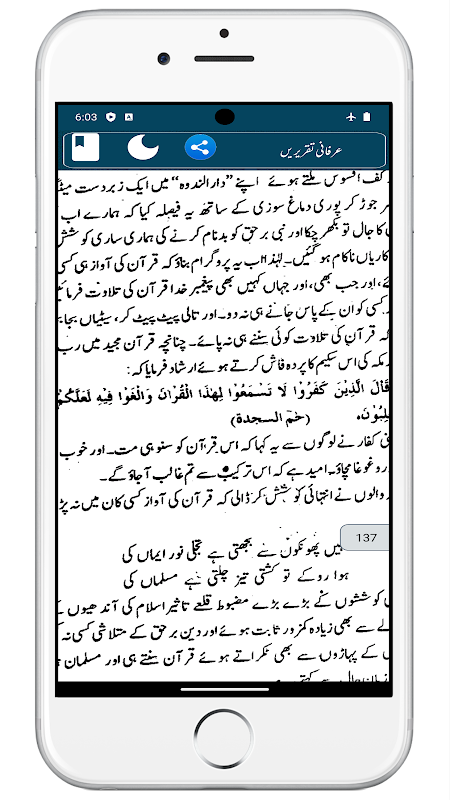 6:03 A
عرفانی تقریریں
کف افسوس ملتے ہوئے اپنے ”دارالندوہ“ میں ایک زبردست میٹنگ
جوڑ کر پوری دماغ سوزی کے ساتھ یہ فیصلہ کیا کہ ہمارے اب
کا جال تو بکھر چکا اور نبی برحق کو بدنام کرنے کی ہماری ساری کوشش
کاریاں ناکام ہو گئیں۔ لہٰذا اب یہ پروگرام بناؤ کہ قرآن کی آواز ہی کسی
اور جب بھی، اور جہاں کہیں بھی پیغمبر خدا قرآن کی تلاوت فرمائیں
کسی کو ان کے پاس جانے ہی نہ دو۔ اور تالی پیٹ پیٹ کر، سیٹیاں بجا بجا
کہ قرآن کی تلاوت کوئی سننے ہی نہ پائے۔ چنانچہ قرآن مجید میں رب
مکہ کی اس سکیم کا پردہ فاش کرتے ہوئے ارشاد فرمایا کہ:
قَالَ الَّذِيْنَ كَفَرُوْا لَا تَسْمَعُوْا لِهٰذَا الْقُرْاٰنِ وَالْغَوْا فِيْهِ لَعَلَّكُمْ
لِبُوْنَ (حٰمٓ السجدة)
کفار نے لوگوں سے یہ کہا کہ اس قرآن کو سنو ہی مت۔ اور خوب
رو غوغا مچاؤ۔ امید ہے کہ اس ترکیب سے تم غالب آ جاؤ گے۔
والوں نے انتہائی کوشش کر ڈالی کہ قرآن کی آواز کسی کان میں نہ پڑ
137
پھونکوں سے بجھتی ہے تجلی نور ایماں کی
ہوا روکے تو کشتی تیز چلتی ہے مسلماں کی
کوششوں کے بڑے بڑے مضبوط قلعے تاثیر اسلام کی آندھیوں
لے سے بھی زیادہ کمزور ثابت ہوئے اور دین برحق کے متلاشی کسی نہ
کے پہاڑوں سے بھی ٹکراتے ہوئے قرآن سنتے ہی اور مسلمان